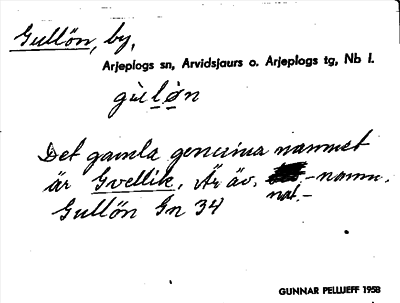 Gullön, by,
Arjeplogs sn, Arvidsjaurs o. Arjeplogs tg, Nb l.
gùlø̀n
Det gamla genuina namnet
är Gvellik. Är äv. nat.-namn.
Gullön Gn 34
GUNNAR PELLIJEFF 1958